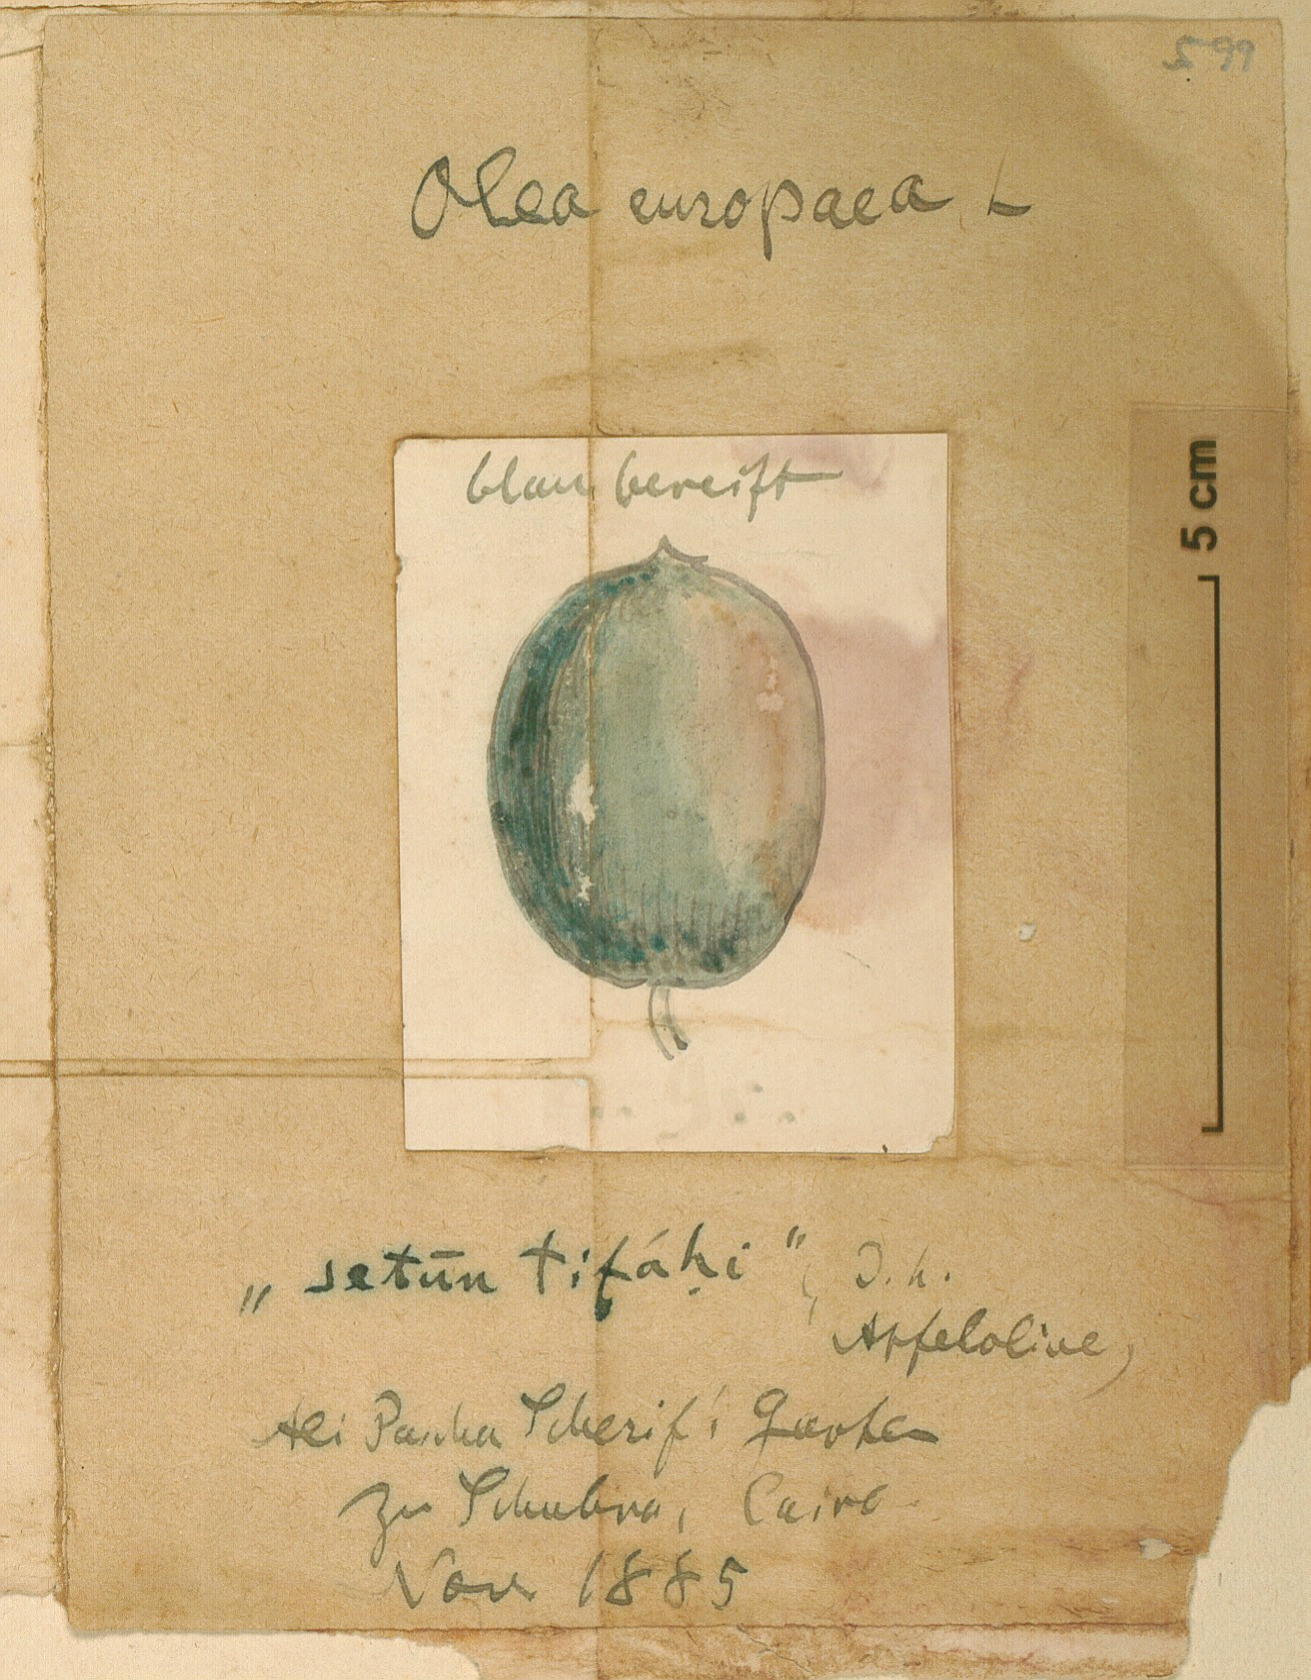 599
Olea europaea L
blau bereift
5 cm
„setūn tifáḥi“, d. h.
Apfelolive,
Ali Pascha Scherif's Garten
zu Schubra, Cairo.
Nov 1885